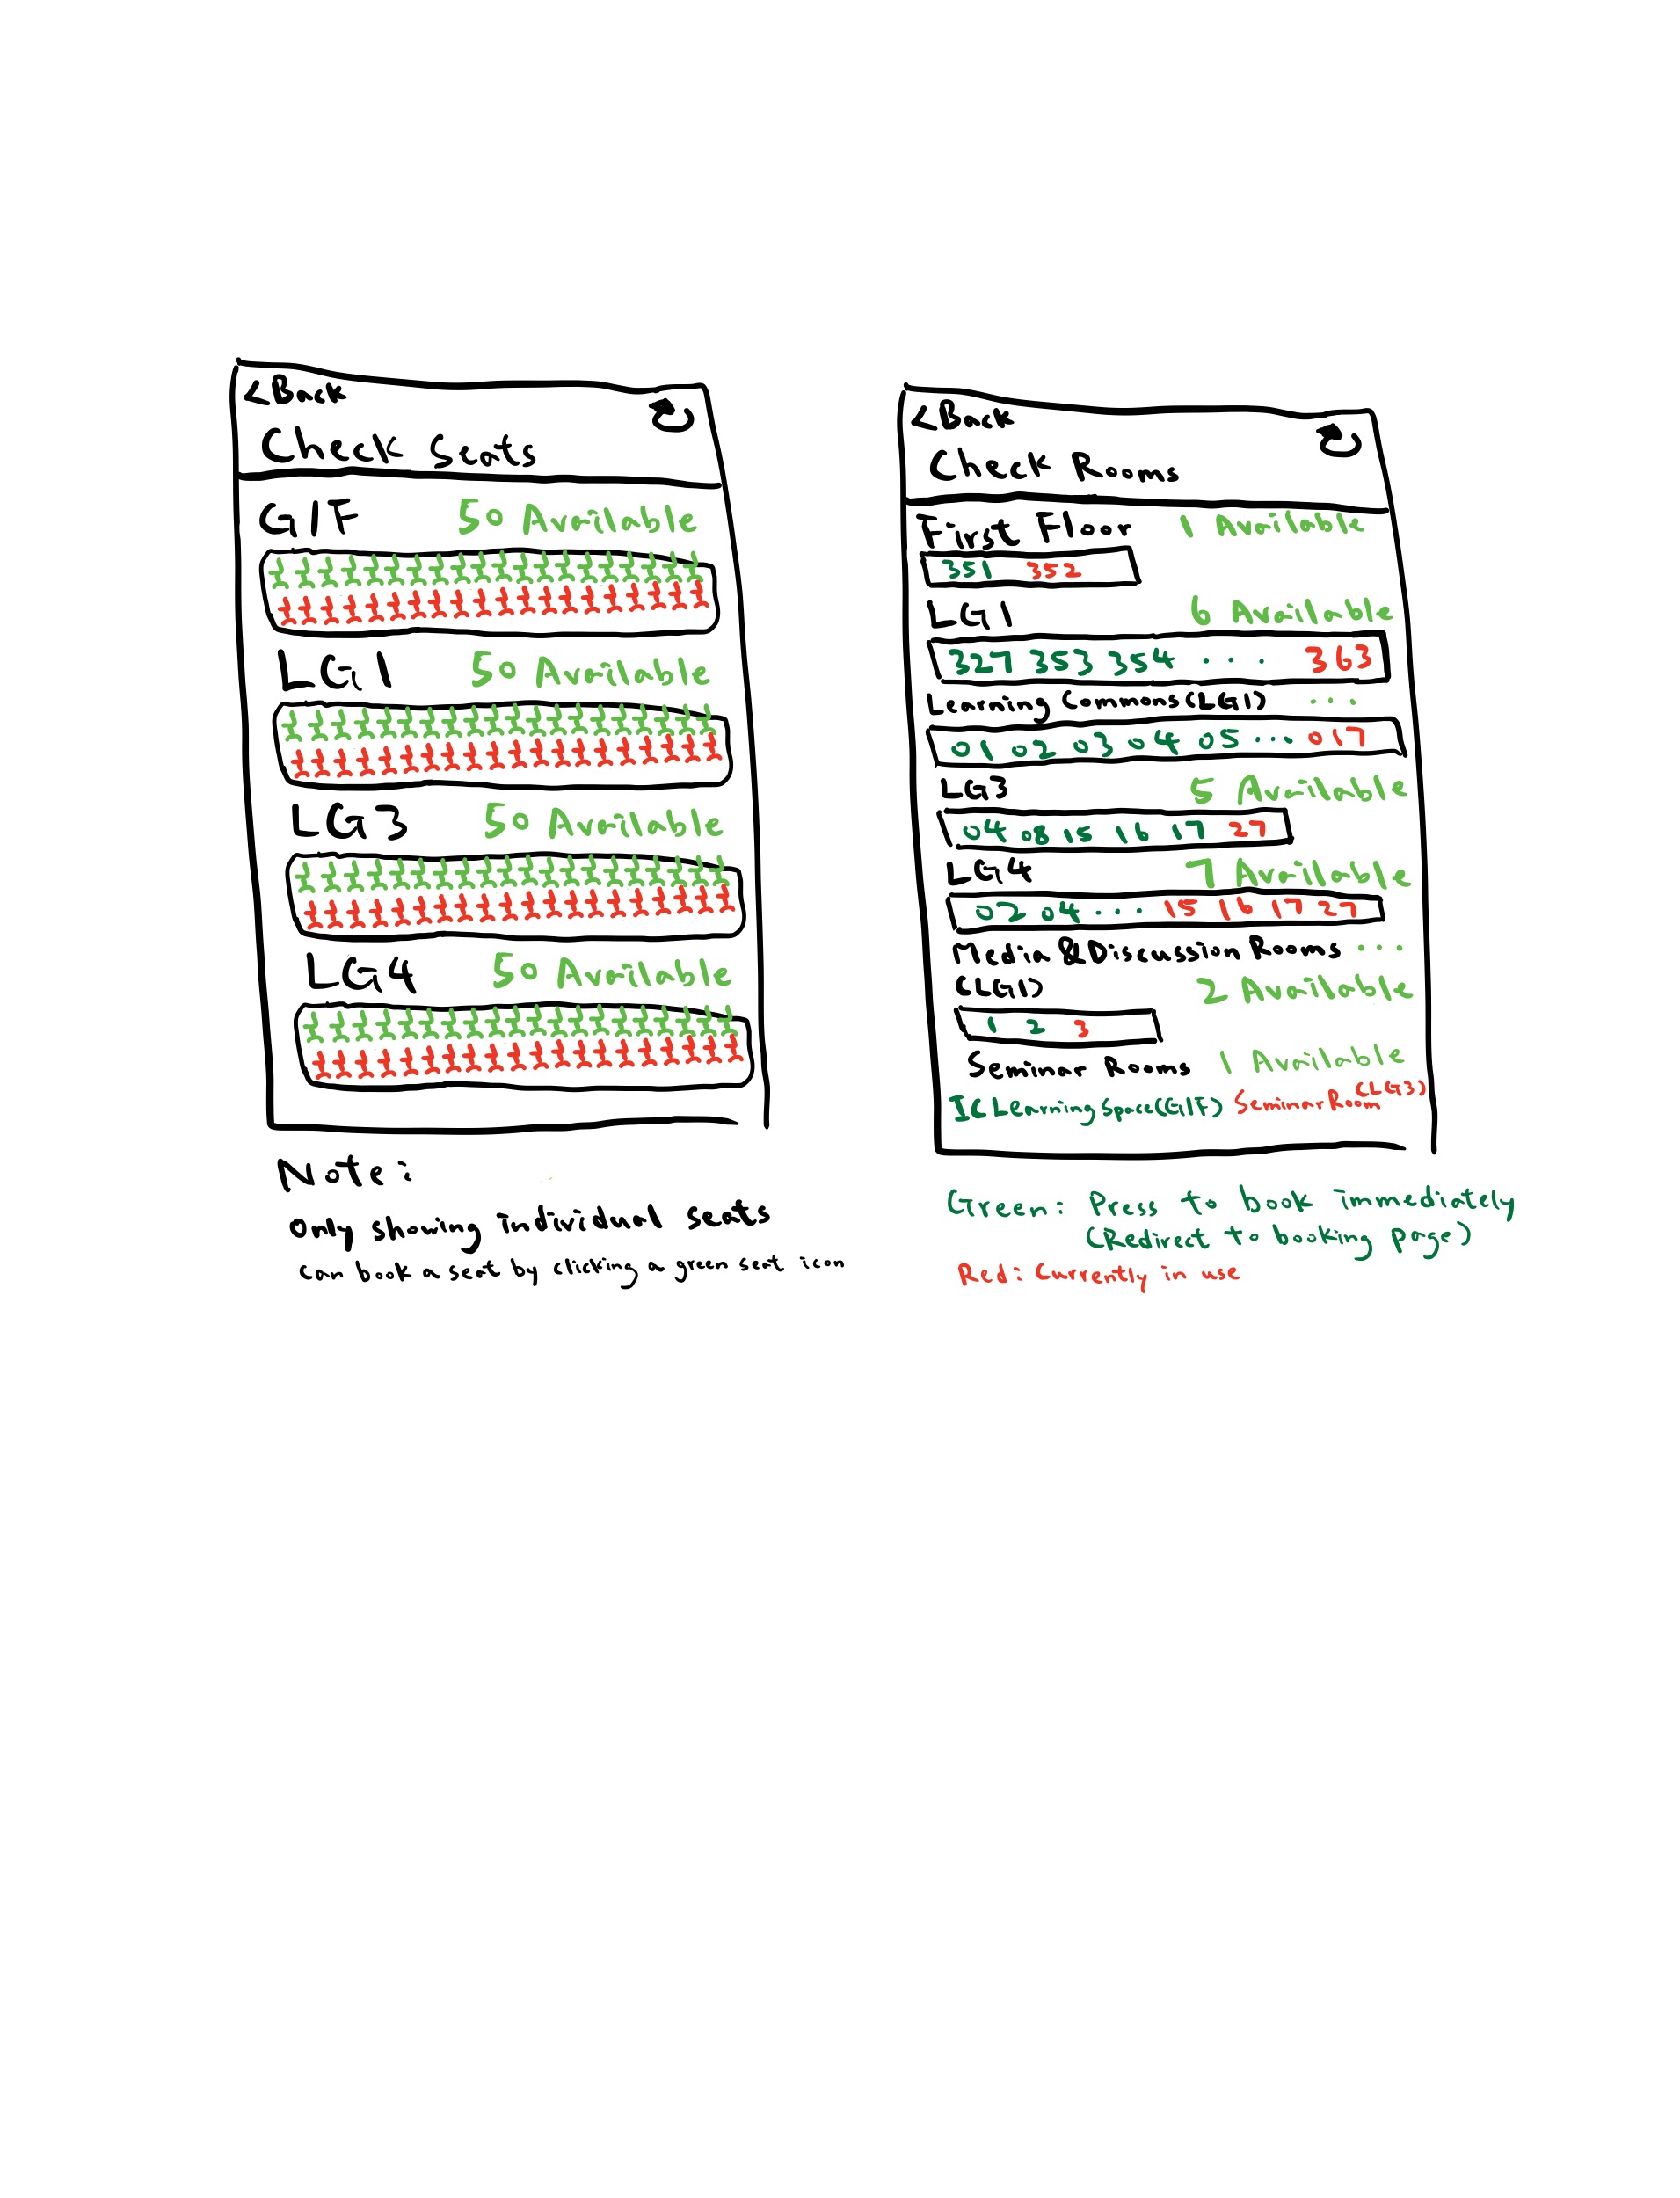 <Back
Check Seats
G/F 50 Available
LG1 50 Available
LG3 50 Available
LG4 50 Available
Note:
Only showing individual seats
can book a seat by clicking a green seat icon
<Back
Check Rooms
First Floor 1 Available
351 352
LG1 6 Available
327 353 354 ... 363
Learning Commons (LG1) ...
01 02 03 04 05 ... 017
LG3 5 Available
04 08 15 16 17 27
LG4 7 Available
02 04 ... 15 16 17 27
Media & Discussion Rooms ...
(LG1) 2 Available
1 2 3
Seminar Rooms 1 Available
IC Learning Space (G/F) Seminar Room (LG3)
Green: Press to book immediately
(Redirect to booking page)
Red: Currently in use